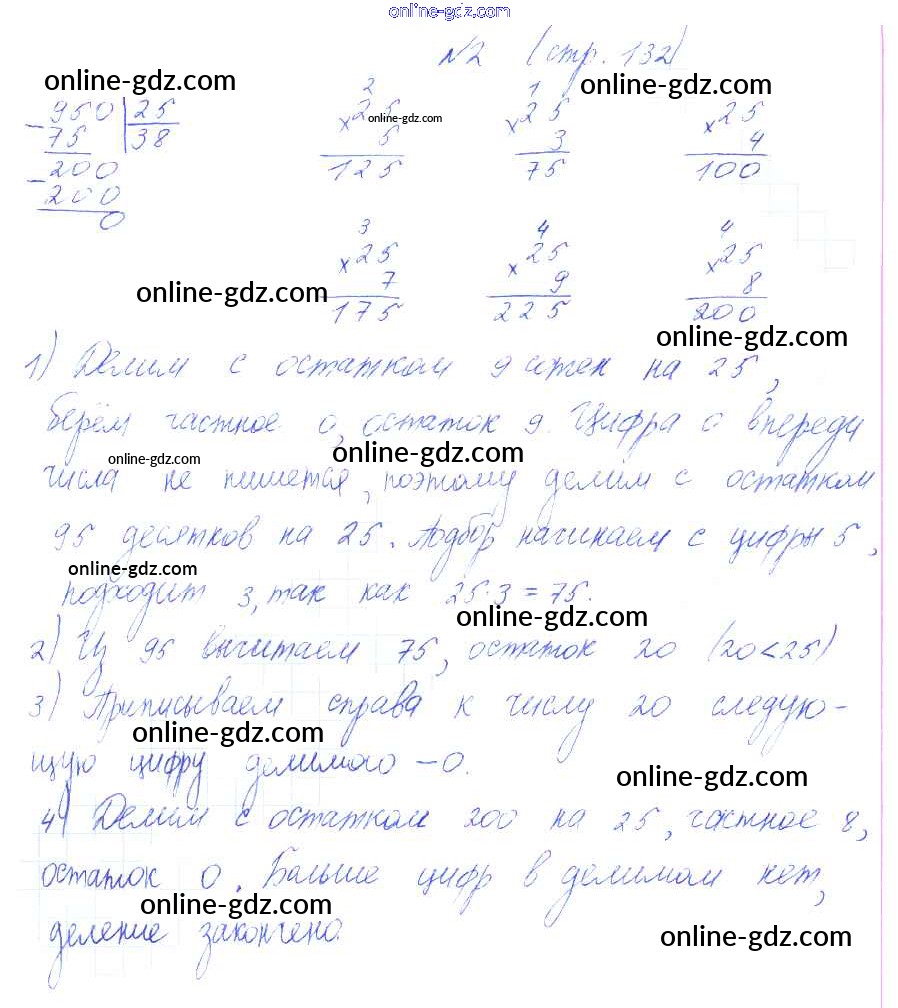 online-gdz.com
№2 (стр. 132)
online-gdz.com online-gdz.com
950 | 25
- 75 | 38
- 200
200
0
2
× 25 online-gdz.com
5
125
1
× 25
3
75
× 25
4
100
3
× 25
7
175
4
× 25
9
225
4
× 25
8
200
online-gdz.com
online-gdz.com
1) Делим с остатком 9 сотен на 25,
берём частное 0, остаток 9. Цифра 0 впереди
online-gdz.com online-gdz.com
числа не пишется, поэтому делим с остатком
95 десятков на 25. Подбор начинаем с цифры 5,
online-gdz.com
подходит 3, так как 25·3=75.
online-gdz.com
2) Из 95 вычитаем 75, остаток 20 (20<25)
3) Приписываем справа к числу 20 следую-
online-gdz.com
щую цифру делимого – 0.
online-gdz.com
4) Делим с остатком 200 на 25, частное 8,
остаток 0. Больше цифр в делимом нет,
online-gdz.com
деление закончено.
online-gdz.com